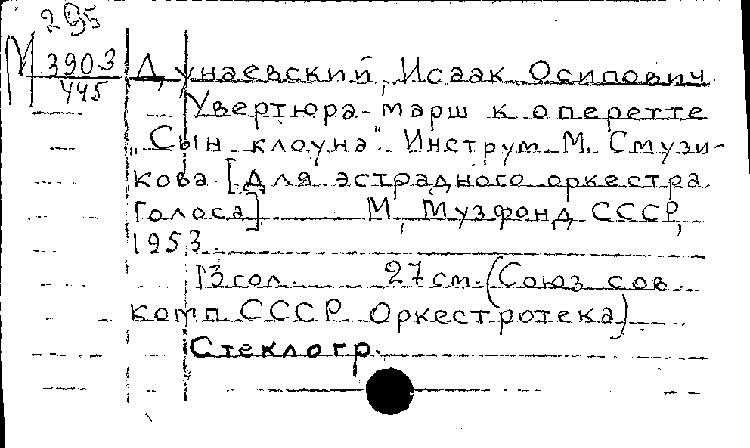 295
М 3903
445
Дунаевский, Исаак Осипович
Увертюра-марш к оперетте
„Сын клоуна". Инструм. М. Смузи-
кова [Для эстрадного оркестра.
Голоса] М, Музфонд СССР,
1953.
13 гол. 27 см. (Союз сов.
комп. СССР. Оркестротека)
Стеклогр.